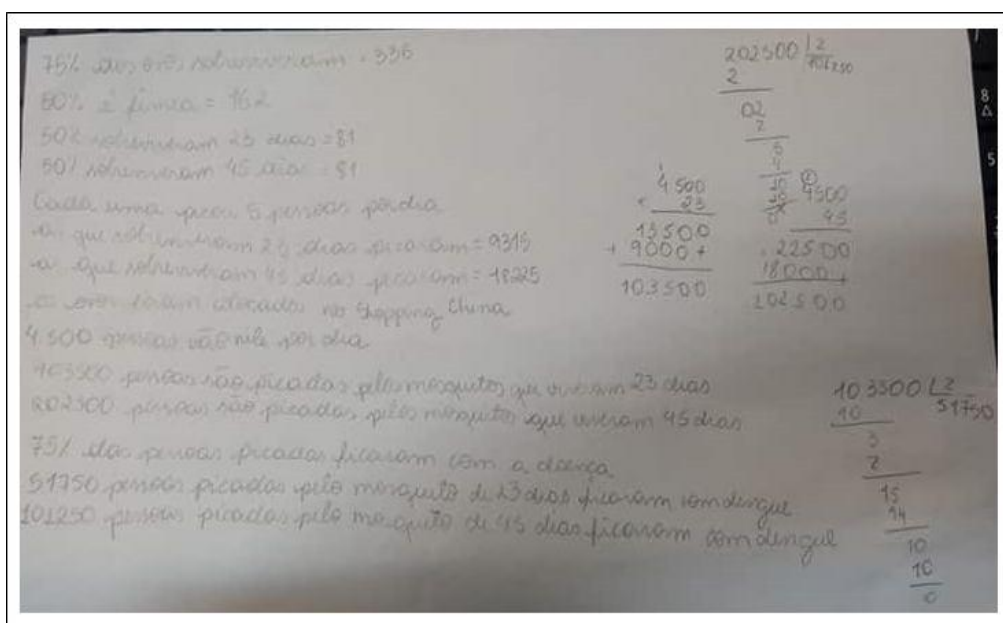 75% dos ovos sobreviveram = 336
50% é fêmea = 162
50% sobreviveram 23 dias = 81
50% sobreviveram 45 dias = 81
Cada uma picou 5 pessoas por dia
as que sobreviveram 23 dias picaram = 9315
as que sobreviveram 45 dias picaram = 18225
os ovos foram colocados no Shopping China
4.500 pessoas vão nele por dia
103500 pessoas são picadas pelos mosquitos que viveram 23 dias
202500 pessoas são picadas pelos mosquitos que viveram 45 dias
75% das pessoas picadas ficaram com a doença
51750 pessoas picadas pelo mosquito de 23 dias ficaram com dengue
101250 pessoas picadas pelo mosquito de 45 dias ficaram com dengue
202500 | 2
101250
2
02
2
5
4
10
10
0
4500
× 23
13500
+ 9000 +
103500
4500
45
22500
18000 +
202500
103500 | 2
51750
10
3
2
15
14
10
10
0
8
5